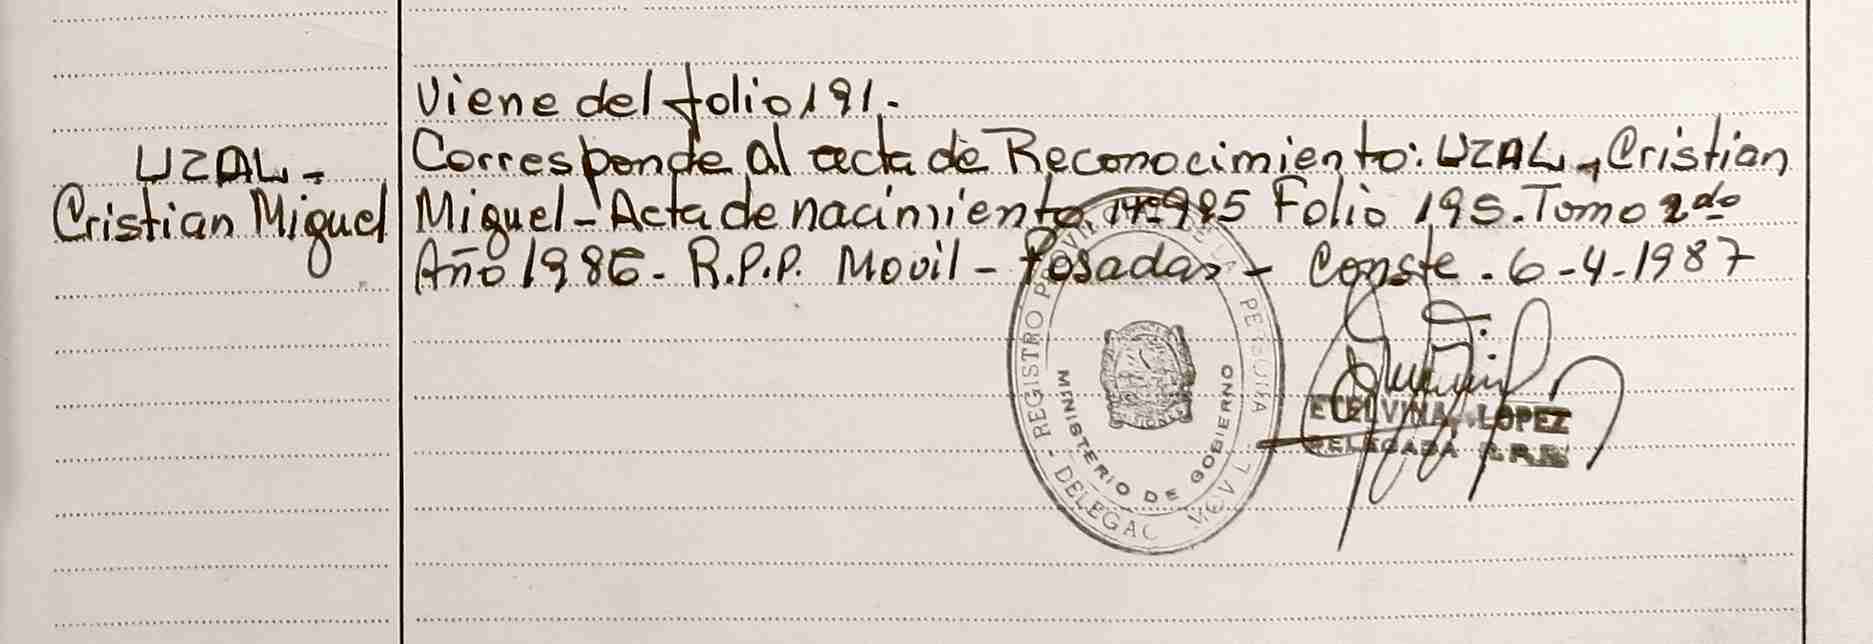 Viene del folio 191.-
UZAL -
Cristian Miguel
Corresponde al acta de Reconocimiento: UZAL, Cristian
Miguel - Acta de nacimiento Nº 985 Folio 195. Tomo 2do
Año 1986 - R.P.P. Movil - Posadas - Conste. 6-4-1987
REGISTRO PROVINCIAL DE LAS PERSONAS
MINISTERIO DE GOBIERNO
DELEGAC MOVIL
ETELVINA LOPEZ
DELEGADA